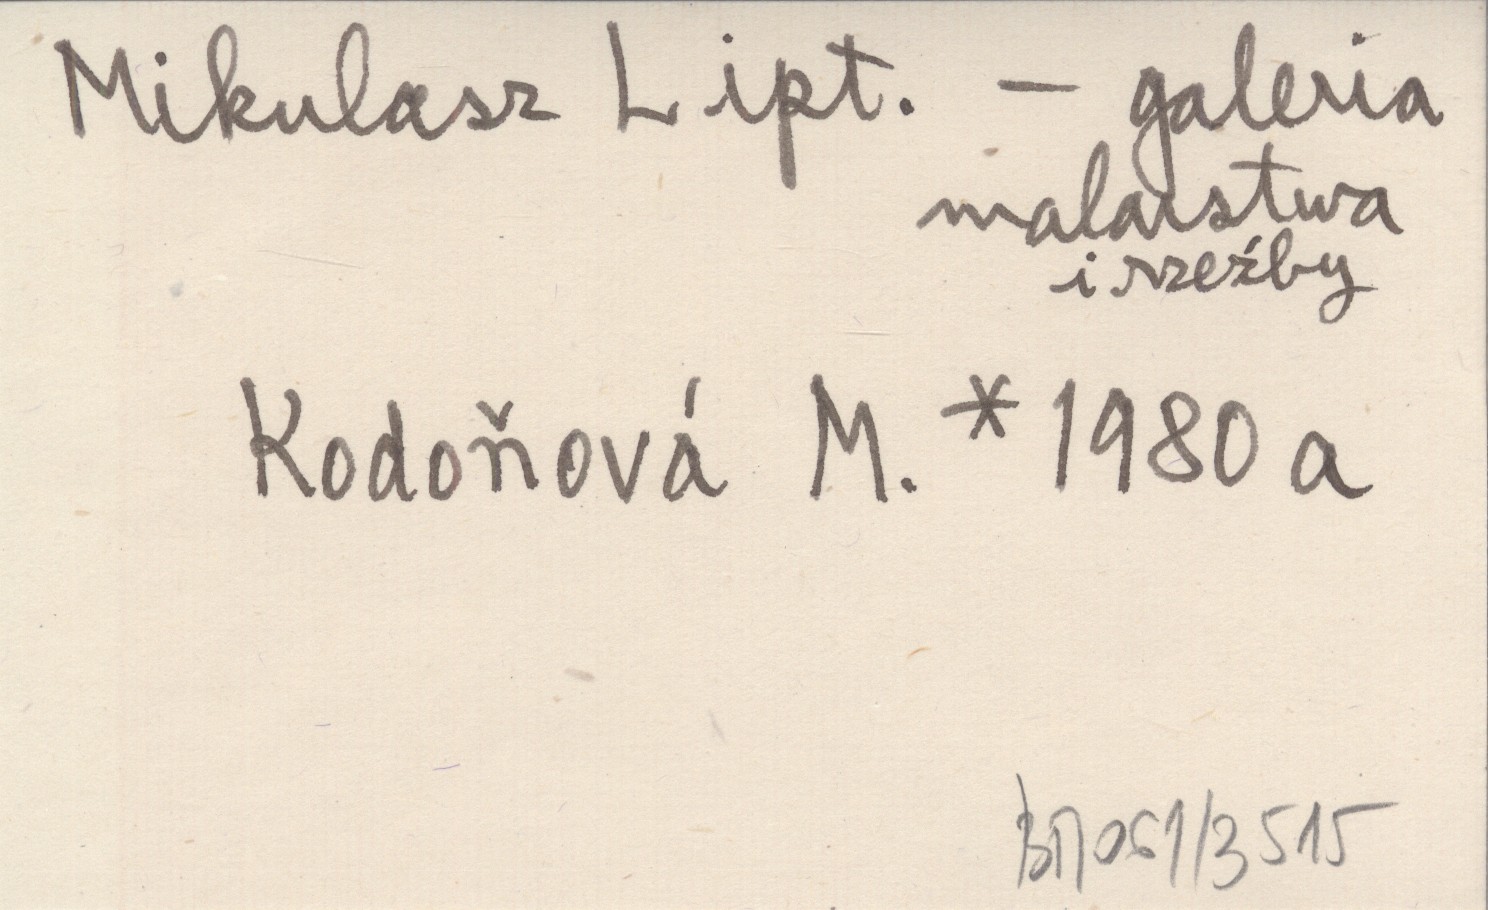 Mikulasz Lipt. — galeria
malarstwa
i rzeźby
Kodoňová M. * 1980 a
/3515